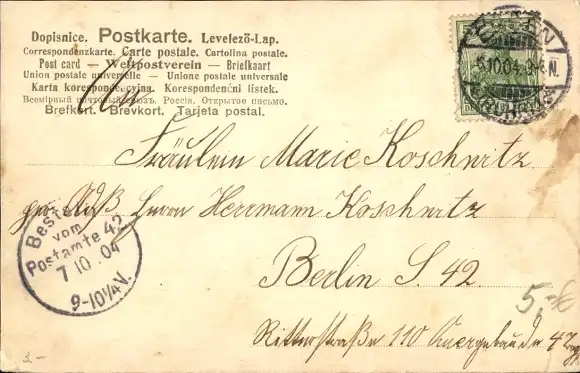 Dopisnice. Postkarte. Levelező-Lap.
Correspondenzkarte. Carte postale. Cartolina postale.
Post card — Weltpostverein — Briefkaart
Union postale universelle — Unione postale universale
Karta korespondencyjna. Korespondenční lístek.
Всемірный почтовый союзъ. Россія. Открытое письмо.
Brefkort. Brevkort. Tarjeta postal.
5.10.04. 3-4 N.
Fräulein Marie Koschnitz
Herrn Herrmann Koschnitz
Bestellt
vom
Postamte 42
7 10 04
9-10¼ V.
Berlin S. 42
5,-€
Ritterstraße 110 Quergebäude 4
3.-